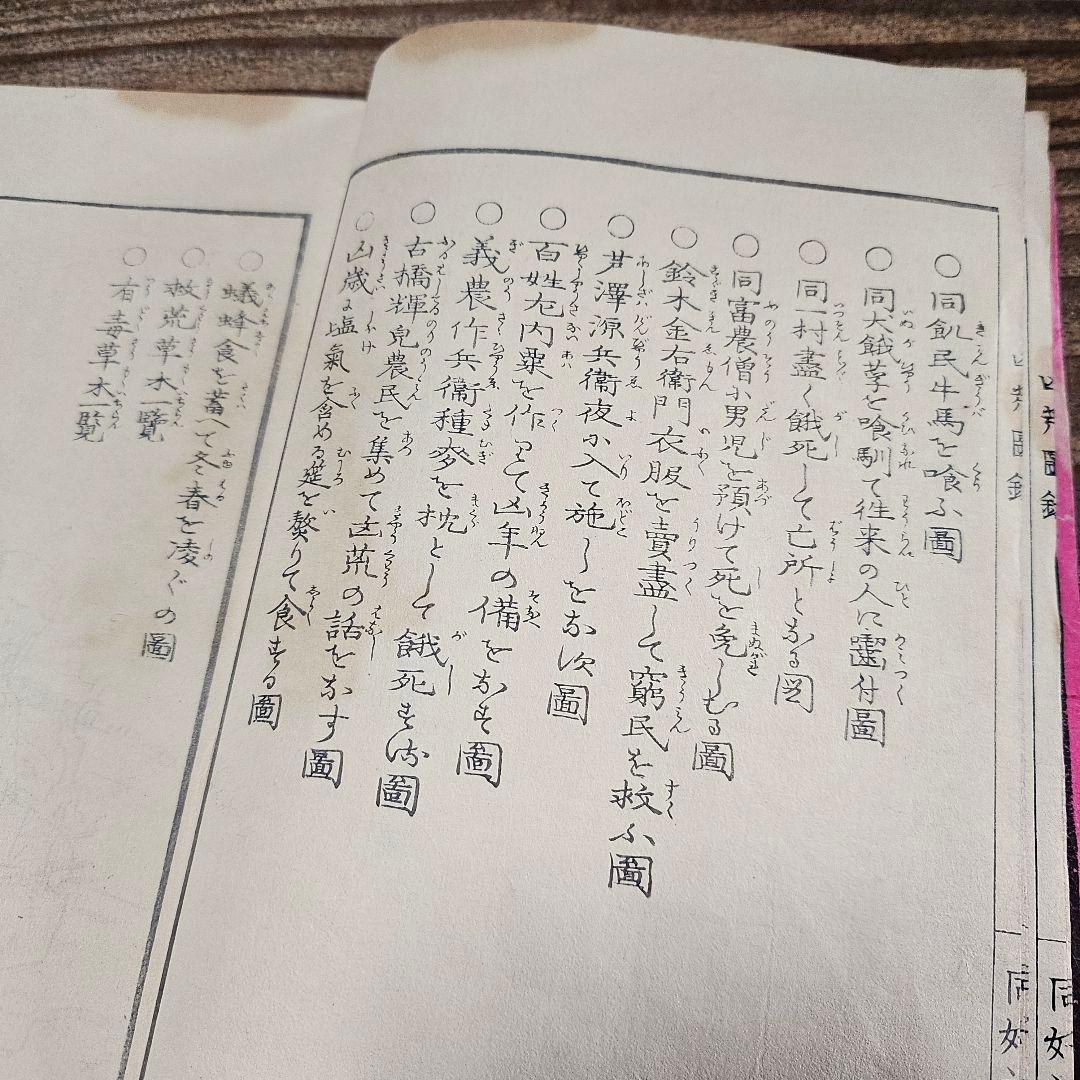 ○同飢民牛馬を喰ふ圖
○同犬餓莩を喰馴て往来の人に囓付圖
○同一村盡く餓死して亡所となる図
○同富農僧小男児を預けて死を免しむる圖
○鈴木金右衛門衣服を賣盡して窮民を救ふ圖
○芦澤源兵衛夜に入て施しをなす圖
○百姓左内粟を作りて凶年の備をなす圖
○義農作兵衛種麥を枕として餓死する圖
○古橋輝皃農民を集めて凶荒の話をなす圖
○凶歳に塩氣を含める莚を熬りて食する圖
○蟻蜂食を蓄へて冬春を凌ぐの圖
○救荒草木一覽
○有毒草木一覧
同好
同好